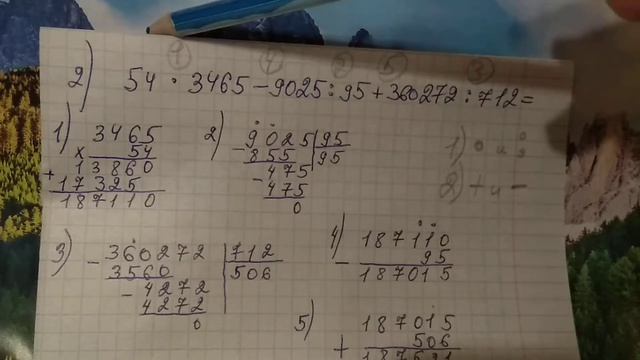 1 4 2 5 3
2) 54 · 3465 - 9025 : 95 + 360272 : 712 =
1) 3465
x 54
+ 13860
17325
187110
2) - 9025 | 95
855 | 95
- 475
475
0
1) · и :
2) + и -
3) - 360272 | 712
3560 | 506
- 4272
4272
0
4) - 187110
95
187015
5) + 187015
506